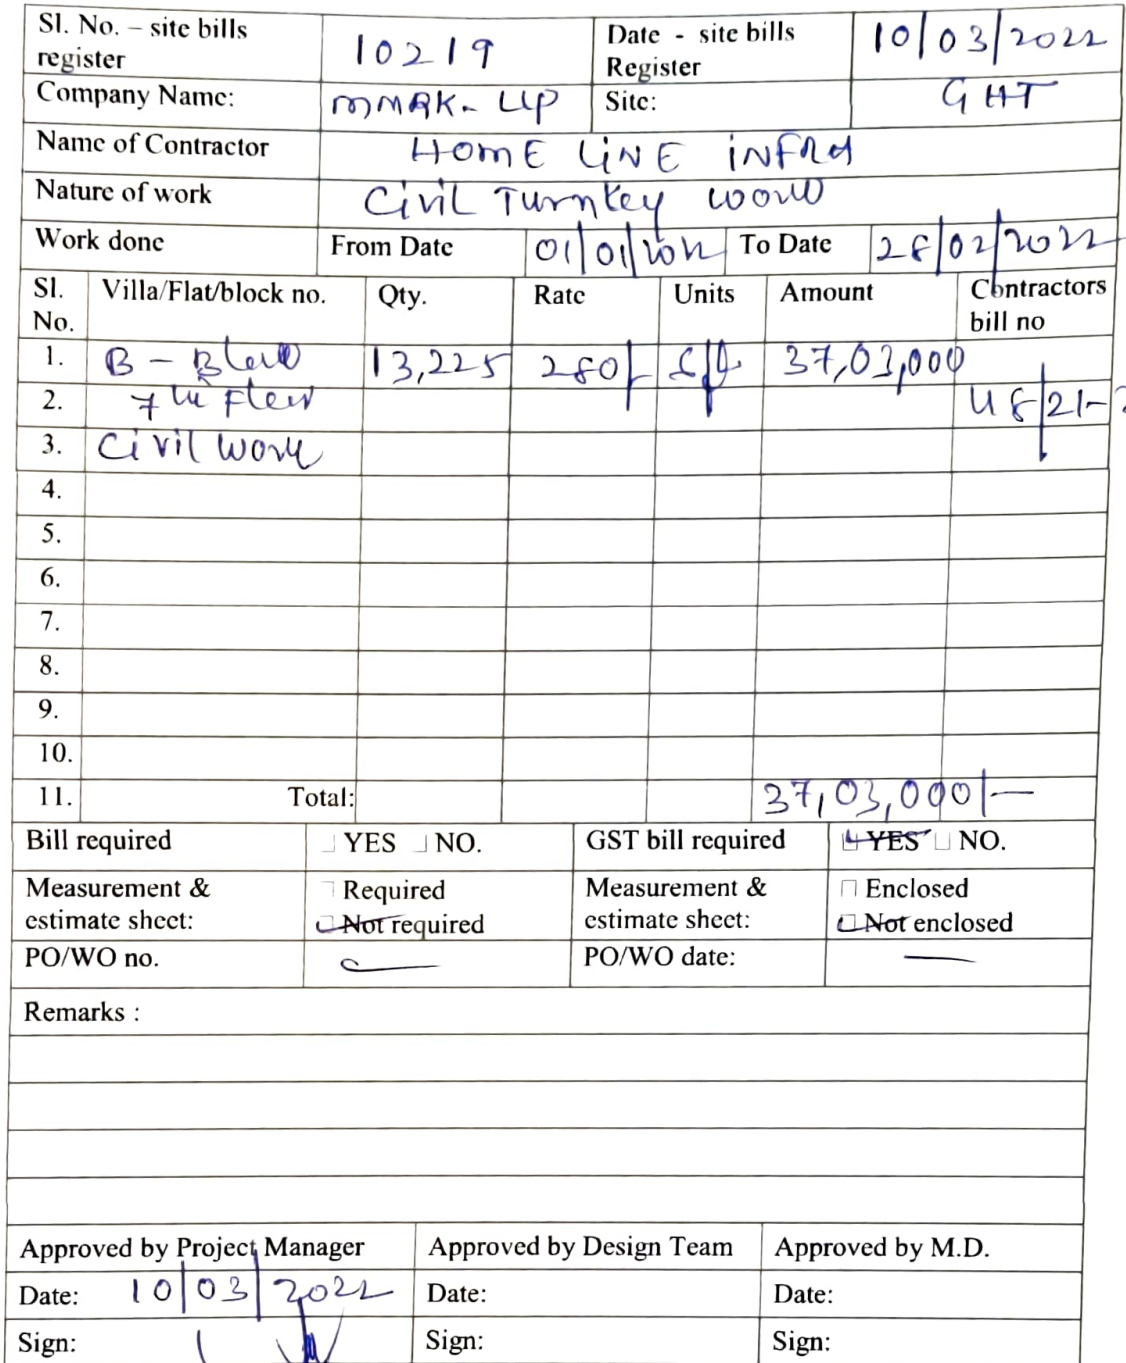 Sl. No. – site bills register 10219 Date - site bills Register 10/03/2022
Company Name: MMRK- LLP Site: GHT
Name of Contractor HOME LINE INFRA
Nature of work Civil Turnkey work
Work done From Date 01/01/2022 To Date 28/02/2022
Sl. No. Villa/Flat/block no. Qty. Rate Units Amount Contractors bill no
1. B - Block 13,225 280/- sft 37,03,000
2. 7th Floor 48/21-2
3. Civil work
4.
5.
6.
7.
8.
9.
10.
11. Total: 37,03,000/-
Bill required YES NO. GST bill required YES NO.
Measurement & estimate sheet: Required Measurement & estimate sheet: Enclosed
Not required Not enclosed
PO/WO no. — PO/WO date: —
Remarks :
Approved by Project Manager Approved by Design Team Approved by M.D.
Date: 10/03/2022 Date: Date:
Sign: Sign: Sign: